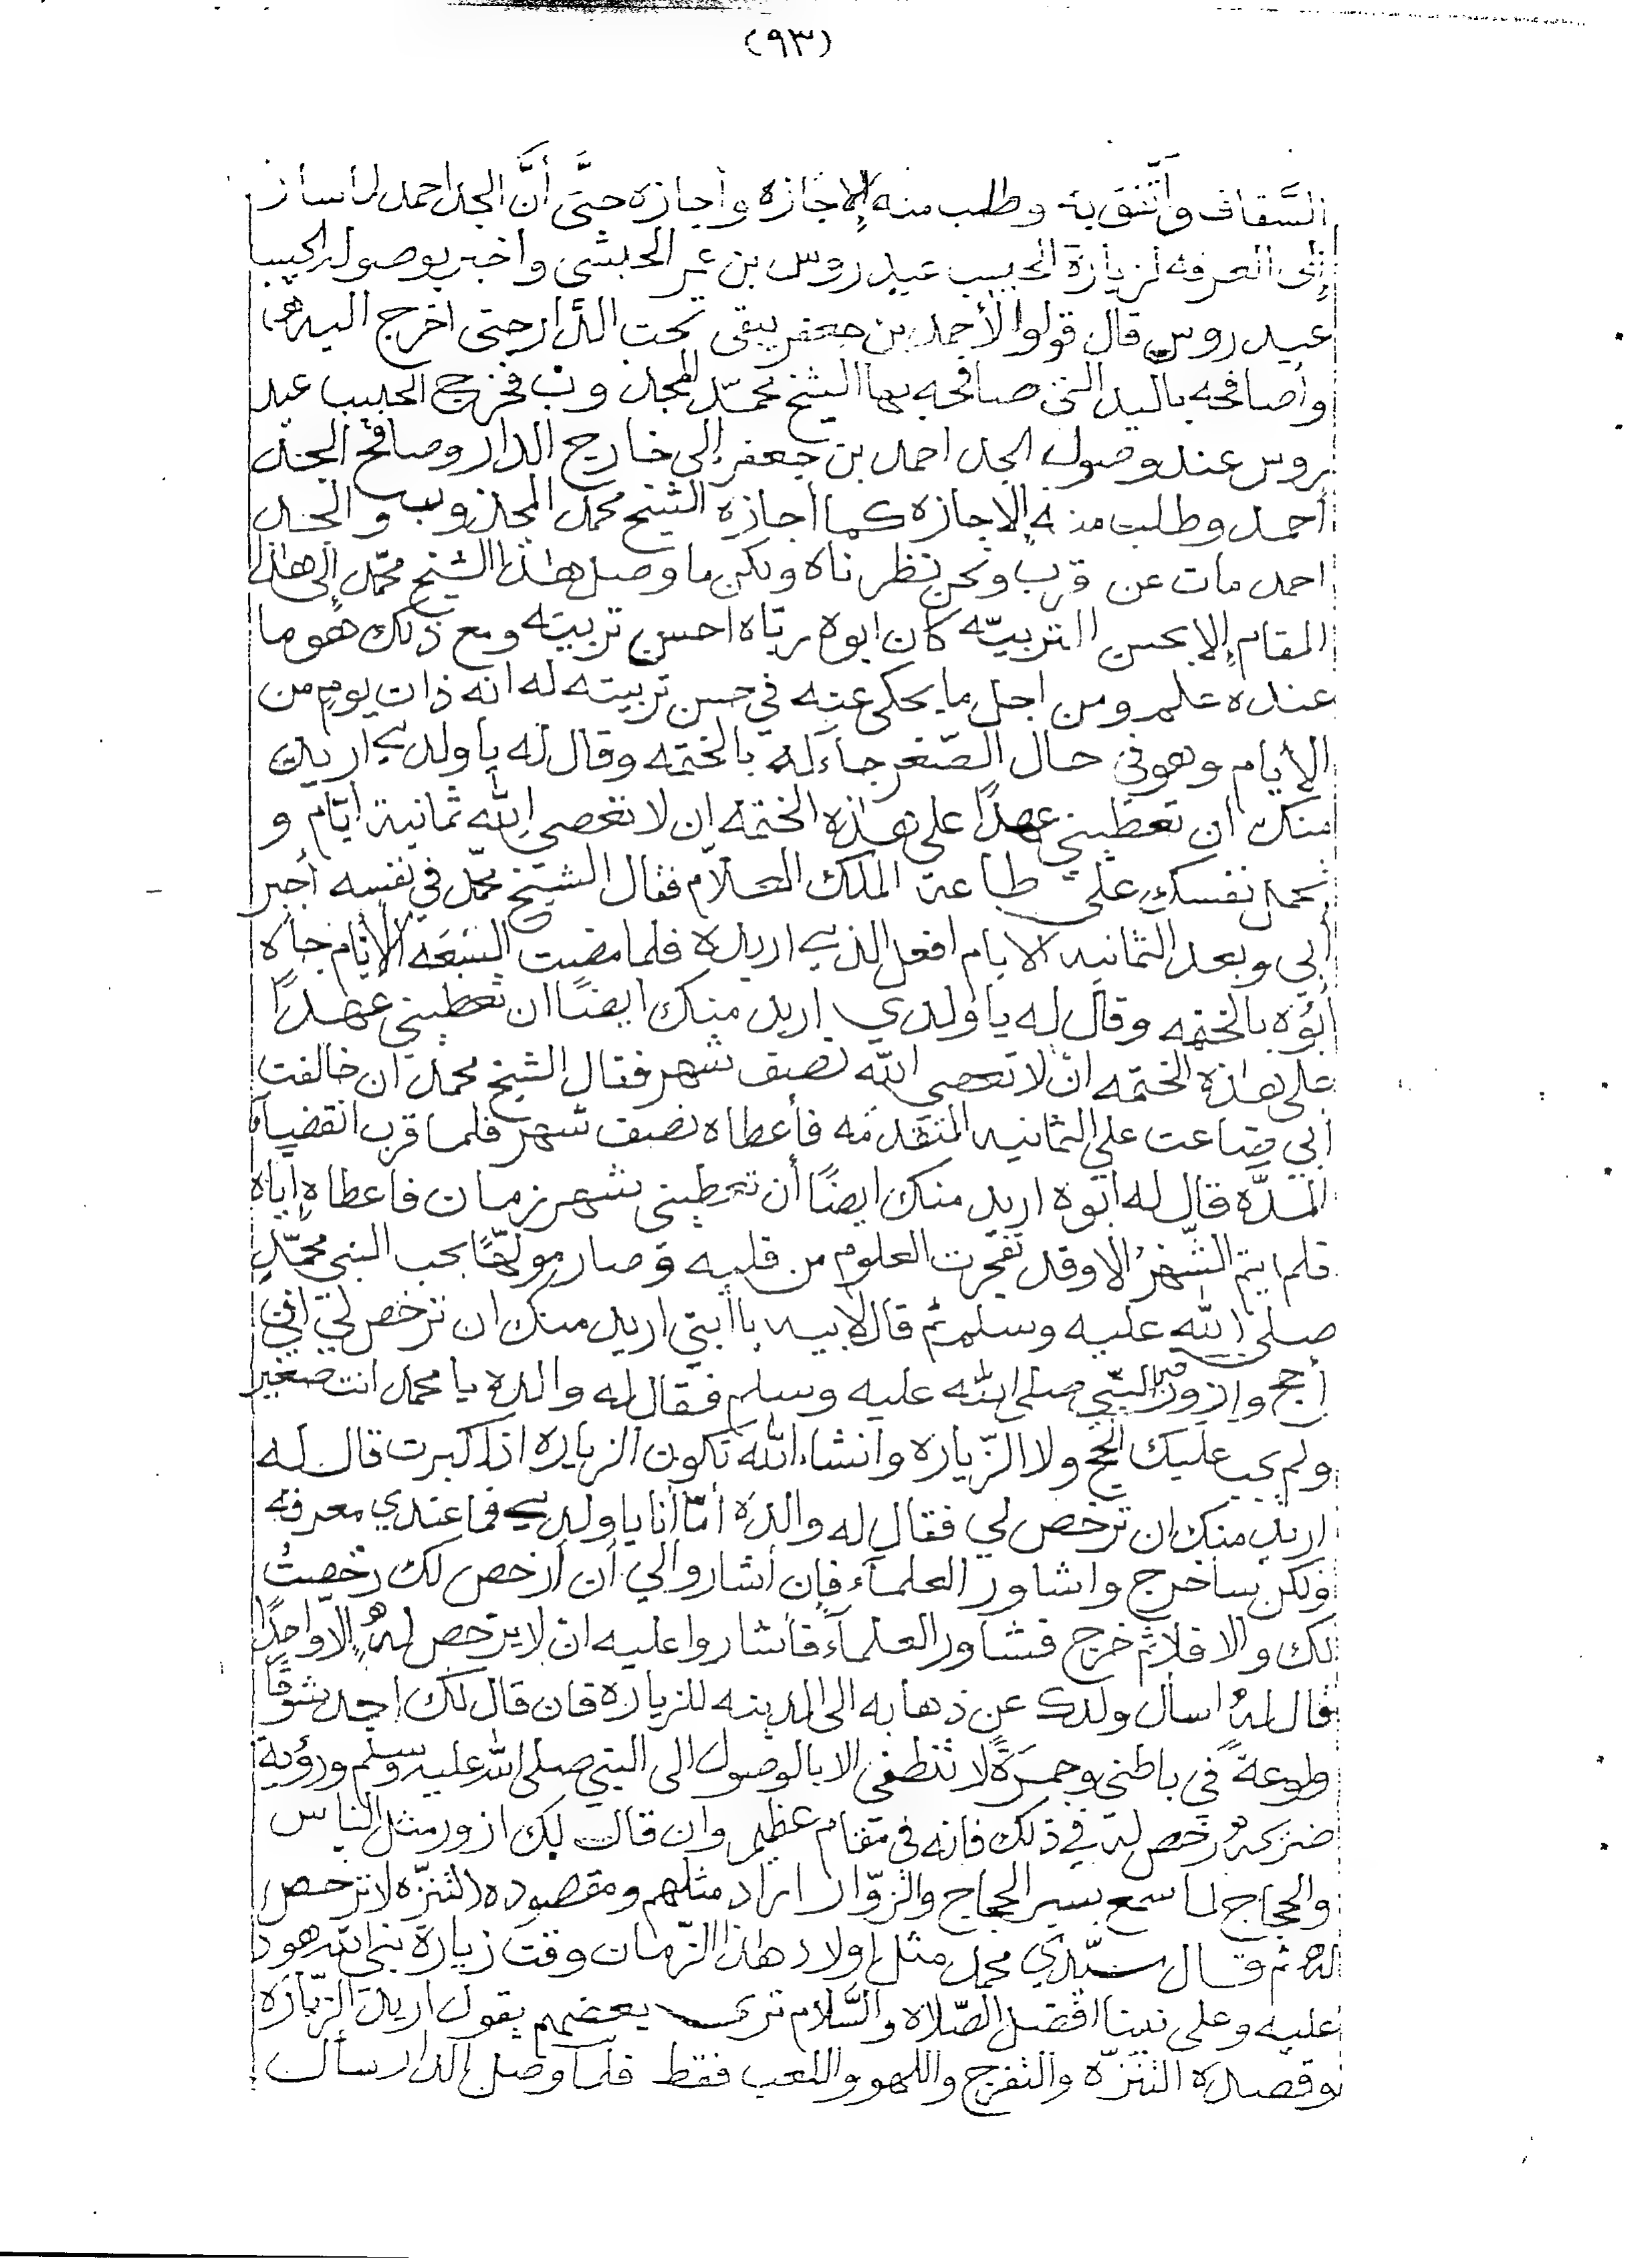 (٩٣)
السَّقاف واتّفق به وطلب منه الإجازه وأجازه حتَّى أنَّ الجد احمد لما سار
إلى الغرفه لزيارة الحبيب عيدروس بن عمر الحبشي واخبر بوصوله الحبيب
عيدروس قال قولوا لأحمد بن جعفر يبقى تحت الدَّار حتى اخرج اليه
وأصافحه باليد التي صافحه بها الشيخ محمّد المجذوب فخرج الحبيب عيد
روس عند وصول الجد احمد بن جعفر إلى خارج الدار وصافح الجد
أحمد وطلب منه الإجازه كما أجازه الشيخ محمد المجذوب والجد
احمد مات عن قرب ونحن نظرناه ولكن ما وصل هذا الشيخ محمّد إلى هذا
المقام إلا بحسن التربيّه كان ابوه ربّاه احسن تربيته ومع ذلك هو ما
عنده علم ومن اجل ما يحكى عنه في حسن تربيته له انه ذات يوم من
الأيام وهو في حال الصّغر جاء له بالختمه وقال له يا ولدي اريد
منك ان تعطيني عهدًا على هذه الختمة ان لا تعصي الله ثمانية ايّام و
تحمل نفسك على طاعة الملك العلاّم فقال الشيخ محمّد في نفسه أجبر
أبي وبعد الثمانيه الايام افعل الذي اريده فلما مضت السَّبعَه الأيّام جاه
أبوُه بالختمه وقال له يا ولدي اريد منك ايضًا ان تعطيني عهدًا
على هذه الختمه ان لا تعصي الله نصف شهر فقال الشيخ محمد ان خالفت
أبي ضاعت علي الثمانيه المتقدمه فأعطاه نصف شهر فلما قرب انقضاء
المدَّه قال له ابوه اريد منك ايضًا أن تعطيني شهر زمان فاعطاه إياه
فلم يتم الشّهرُ الا وقد تفجّرت العلوم من قلبه وصار مولّهًا بحب النبي محمّدٍ
صلى الله عليه وسلم ثم قال لأبيه يا أبتي اريد منك ان ترخص لي اني
أحج وازور قبر النبي صلى الله عليه وسلم فقال له والده يا محمد انت صغير
ولم يجب عليك الحج ولا الزّياره وانشاء الله تكون الزياره اذا كبرت قال له
اريد منك ان ترخص لي فقال له والده أمّا أنا يا ولدي فما عندي معرفه
ولكن ساخرج واشاور العلماء فإن أشاروا لي أن أرخص لك رخّصتُ
لك والا فلا ثم خرج فشاور العلماء فأشاروا عليه ان لا يرخص له إلا واحدًا
قال لهُ اسأل ولدك عن ذهابه الى المدينه للزياره فان قال لك اجد شوقًا
ولوعةً في باطني وجمرَةً لا تنطفي الا بالوصول الى النبي صلى الله عليه وسلم ورؤية
ضريحه رخّص له في ذلك فانه في مقام عظيم وان قال لك ازور مثل الناس
والحجاج لما سمع بسير الحجاج والزوّار اراد مثلهم ومقصوده التنزّه لا ترخص
له ثم قال سيّدي محمد مثل اولاد هذا الزّمان وقت زيارة نبي الله هود
عليه وعلى نبينا افضل الصّلاه والسَّلام ترى بعضهم يقول اريد الزّياره
وقصده التنزّه والتفرج واللهو واللعب فقط فلما وصل الدار سأل